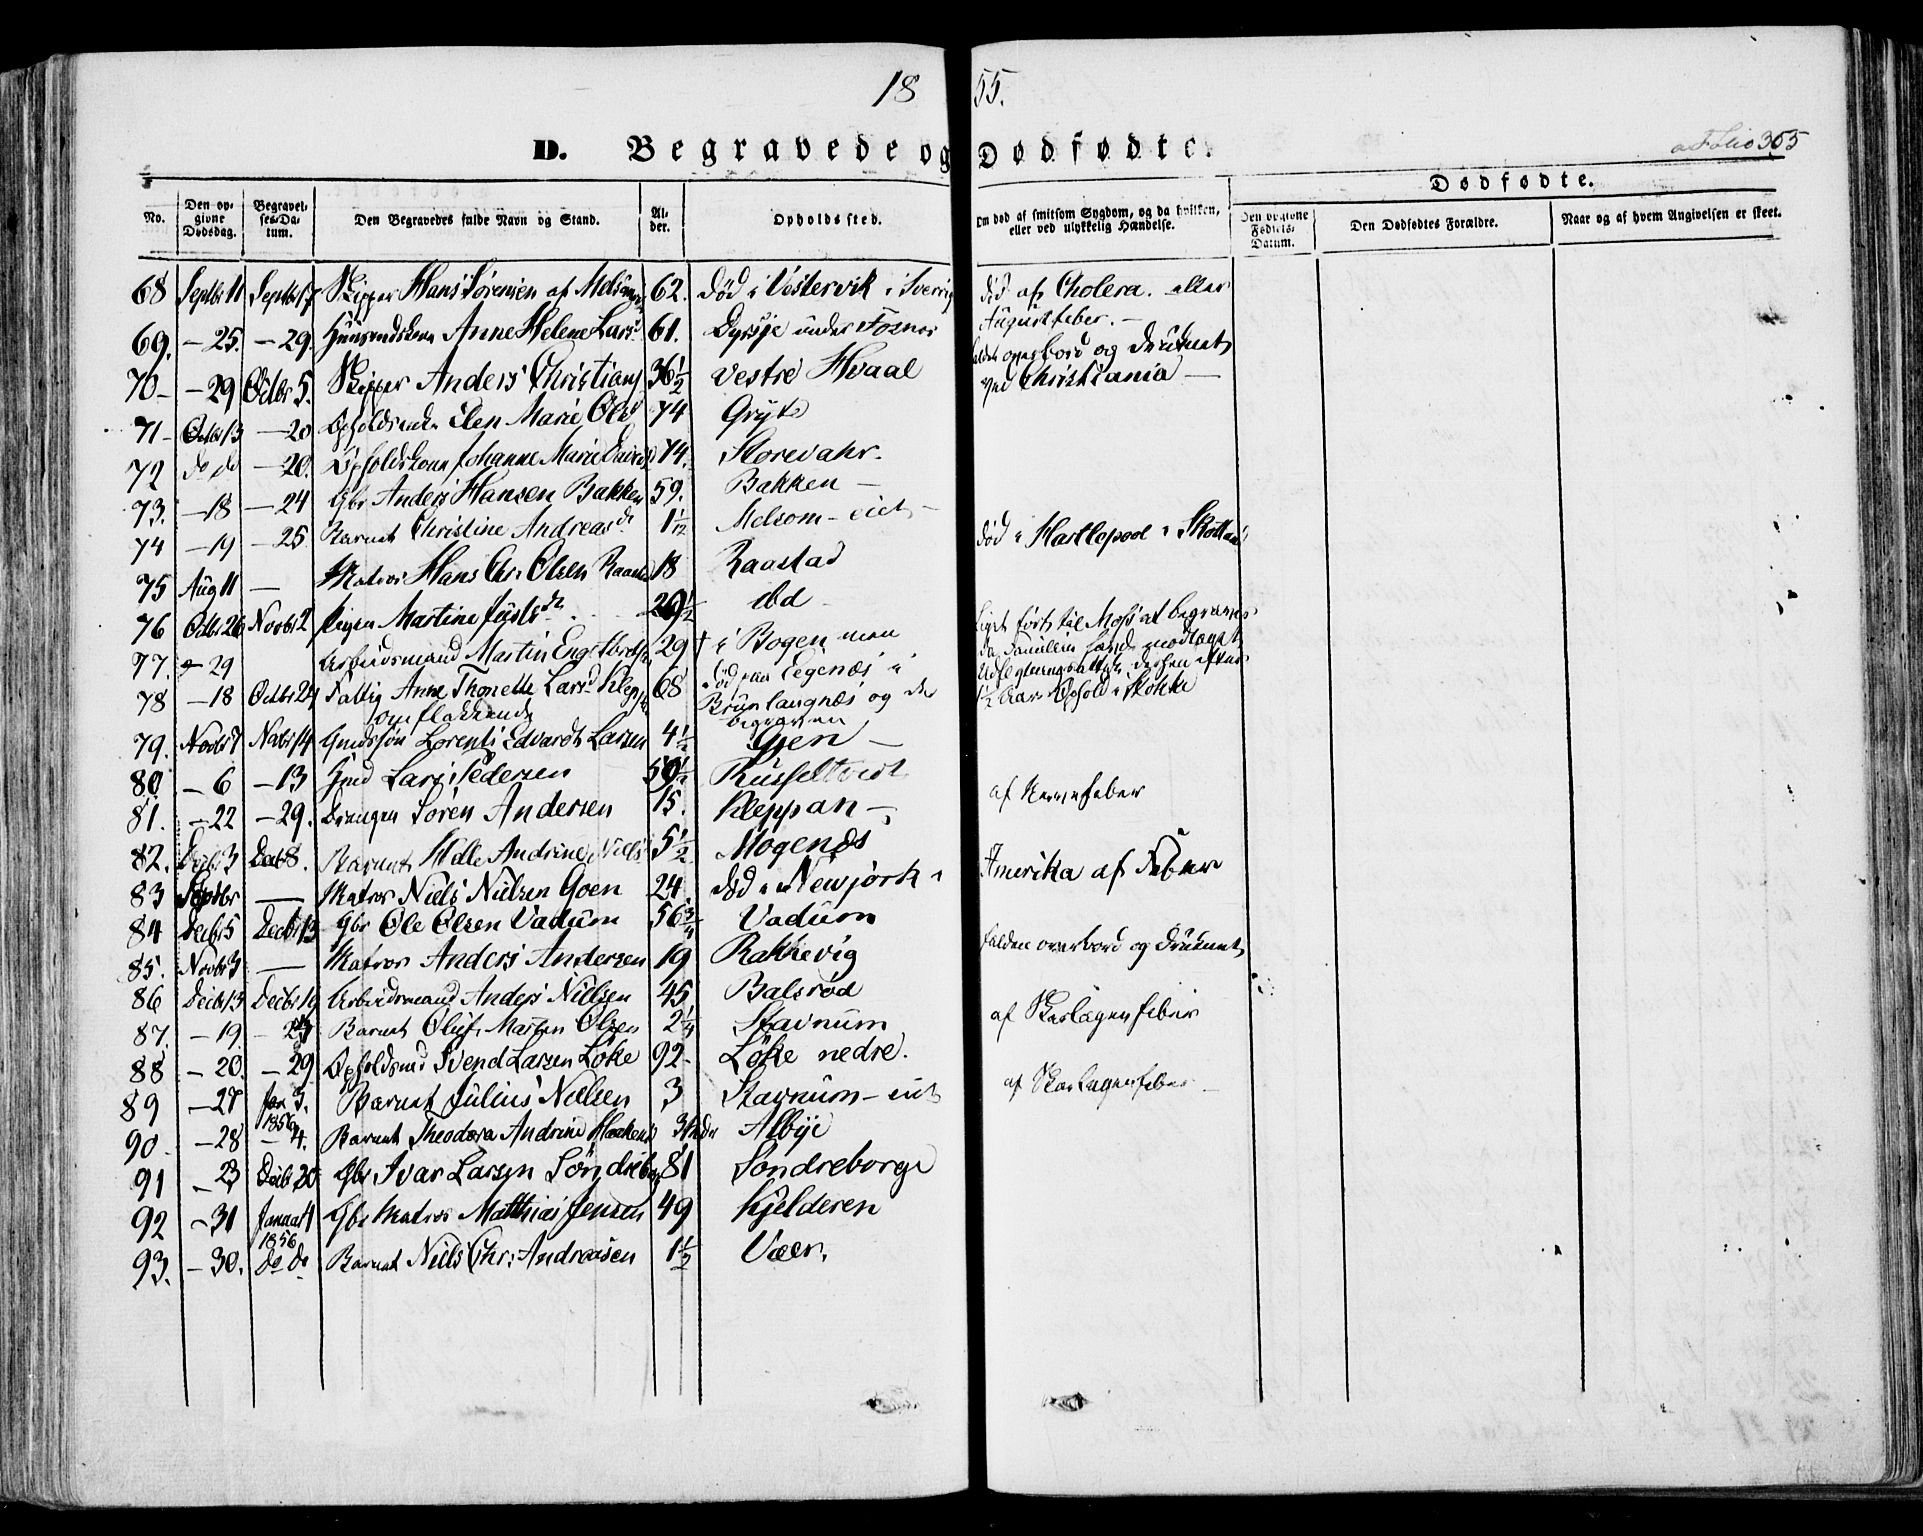 1855.
D. Begravede og Dødfødte.
Folio 305
Dødfødte.
No. Den opgivne Dødsdag. Begravelses-Datum. Den Begravedes fulde Navn og Stand. Alder. Opholdssted. Om død af smitsom Sygdom, og da hvilken, eller ved ulykkelig Hændelse. Den opgivne Fødsels-Datum. Den Dødfødtes Forældre. Naar og af hvem Angivelsen er skeet.
68 Septbr 11 Septbr 17 Skipper Hans Sørensen af 62. død i Vestervik i Sverrig død af Cholera. eller Augustfeber. —
69. — 25. — 29. Anne Helene Larsd 61. under Fosnæs
70 — — 29 Octbr 5. Skipper Anders Christians 36½ Vestre Hvaal overbord og druknet ved Christiania —
71 — Octbr 13 — 20 Elen Marie Olsd 74 Gryte
72 do do — 20. Opholdskone Johanne Marie 74. Storevahr.
73. — 18 — 24 Gbr Anders Hansen Bakken 59. Bakken —
74 — 19 — 25 Barnet Christine Andreasdr 1 1/12 Melsom — eiet —
75 Aug 11 — Matros Hans Chr. Olsen 18 Raastad død i Hartlepool i
76 Octbr 26 Novbr 2 Pigen Martine ibd
77. — 29 Arbeidsmand Martin 29 † i Bogen men Liget ført til Moss at begraves, da Familien havde modtaget
78 — 18 Octbr 24 Fattig Anne Thonette Larsd 68 død paa Eegenæs i Brunlangnæs og der begraven 1½ Aars Ophold i Stokke
omflakkende
79. Novbr 7 Novbr 14 Lorents Edvardt Larsen 4½ Gjen —
80. — 6 — 13 Gmd Lars Pedersen 59½ Russeltvedt
81. — 22 — 29. Drengen Søren Andersen 15. Kleppan — af Nervefeber
82. Decbr 3 Decbr 8. Barnet Helle Andrine Niels 5½ Mogenæs
83 Septbr — Matros Niels Nielsen Goen 24. død i Newjork i Amerika af Feber
84 Decbr 5 Decbr 13 Gbr Ole Olsen Vadum 56¾ Vadum
85. Novbr 3 — Matros Anders Andersen 19 Rakkevig falden overbord og druknet
86 Decbr 13 Decbr 19 Arbeidsmand Anders Nielsen 45 Balsrød
87. — 19. — Barnet Oluf Martin Olsen 2¼ Stavnum af Skarlagensfeber
88 — 20. — 29 Opholdsmd Svend Larsen Løke 92 — Løke nedre.
89 — 27 Jan 3. 1856 Barnet Julius Nielsen 3 Stavnum — eiet af Skarlagensfeber —
90 — — 28 — 4. Barnet Theodora Andrine Albye
91 — 23 Decbr 30 Gbr Ivar Larsen 81 Søndreborge
92 — 31 Januar 4 1856 Gbr Matros Matthias Jensen 49 Kjelderen
93. — 30. do do Barnet Niels Chr. Andreasen 1½ Vaer.